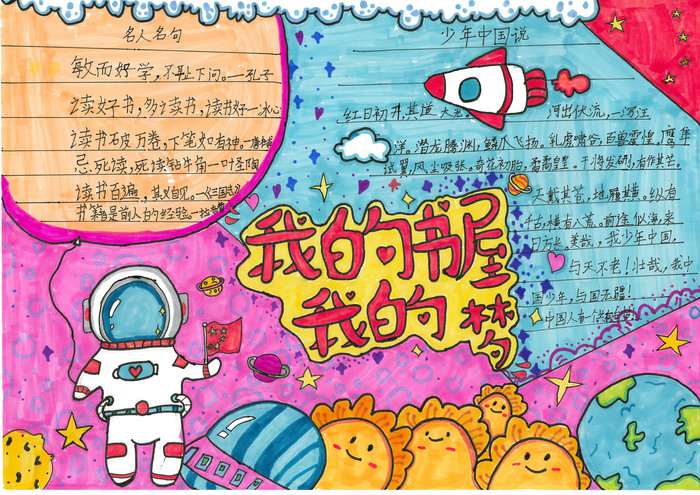 名人名句
敏而好学，不耻下问。—孔子
读好书，多读书，读书好—冰心
读书破万卷，下笔如有神。—唐杜甫
忌死读，死读钻牛角—叶圣陶
读书百遍，其义自见。—《三国志》
书籍是前人的经验。
少年中国说
红日初升，其道大光 河出伏流，一泻汪
洋。潜龙腾渊，鳞爪飞扬。乳虎啸谷，百兽震惶。鹰隼
试翼，风尘吸张。奇花初胎，矞矞皇皇。干将发硎，有作其芒。
天戴其苍，地履其黄。纵有
千古，横有八荒。前途似海，来
日方长。美哉，我少年中国，
与天不老！壮哉，我中
国少年，与国无疆
我的书屋
我的梦